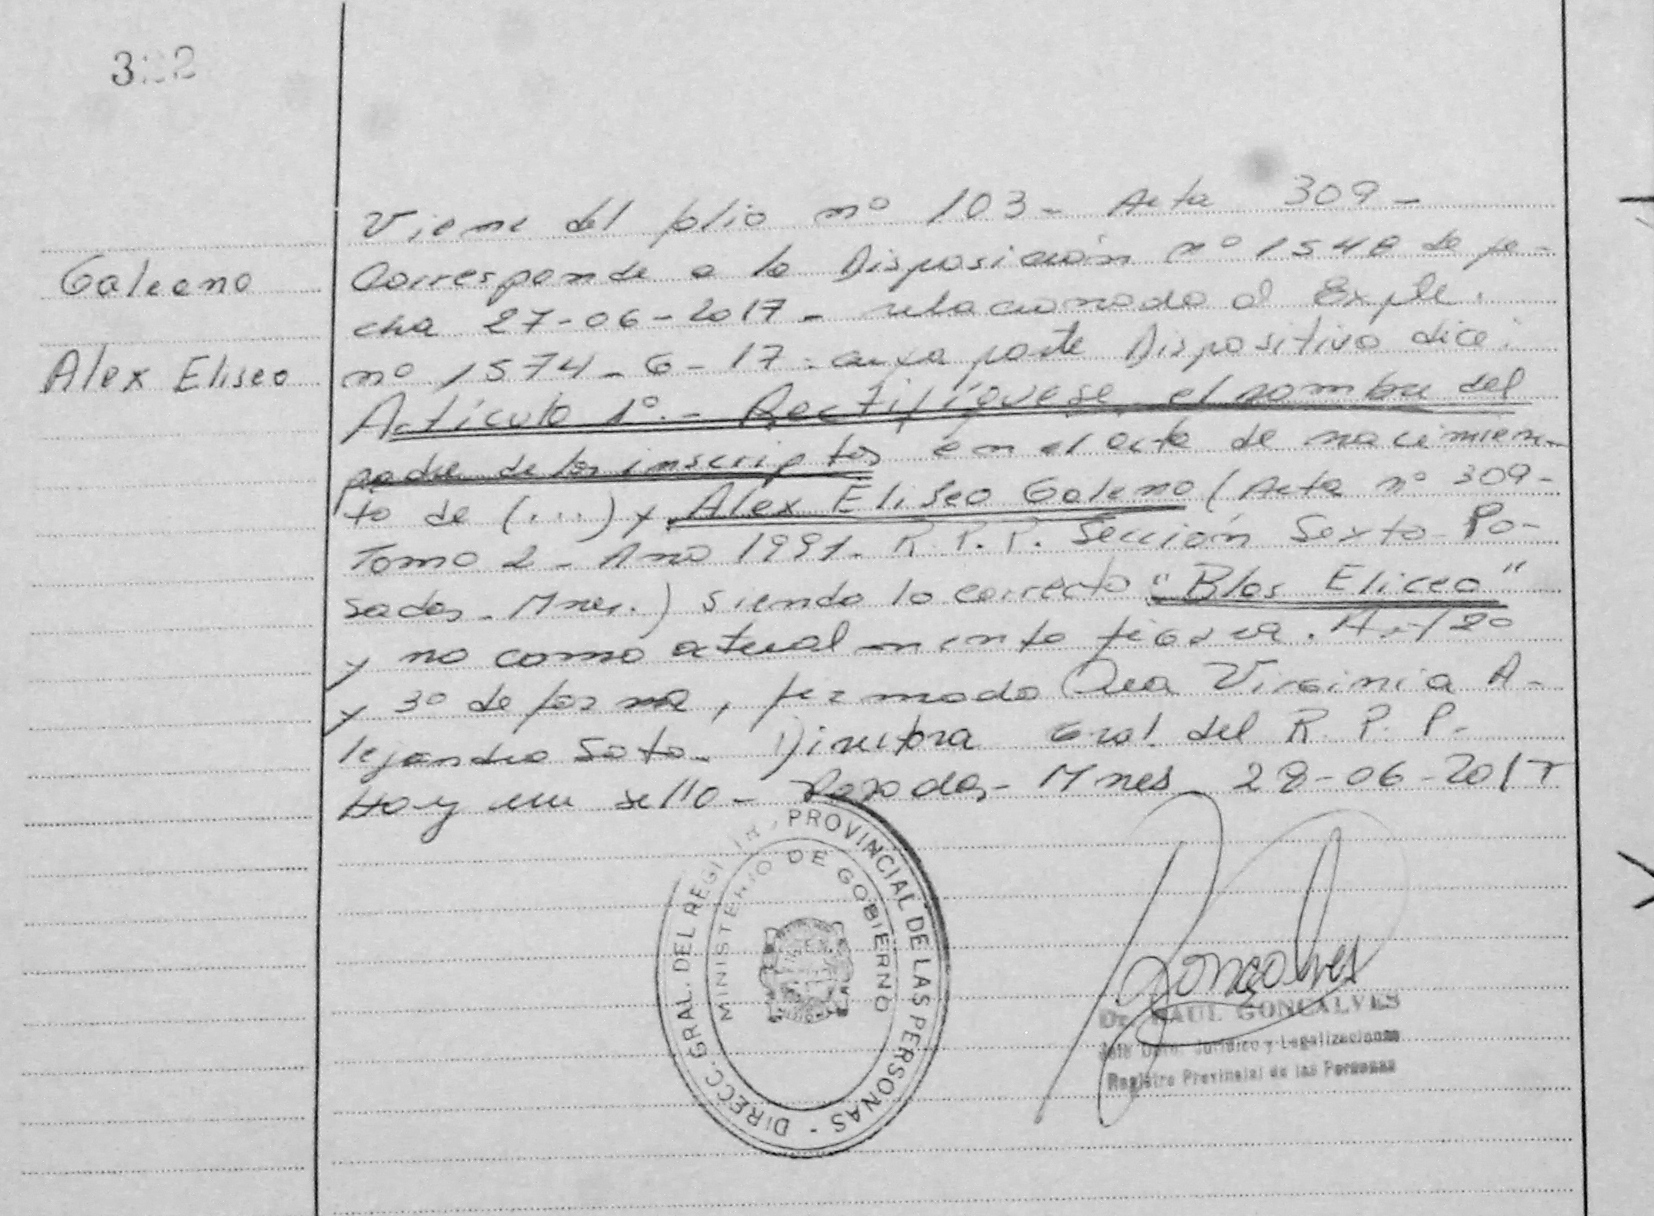 322
Viene del folio nº 103 - Acta 309 -
Galeano
Corresponde a la Disposición nº 1548 de fe-
cha 27-06-2017 - relacionado al Expte.
Alex Eliseo
nº 1574-G-17: cuya parte Dispositiva dice:
Artículo 1º.- Rectifíquese el nombre del
padre de los inscriptos en el acta de nacimien-
to de (...) y Alex Eliseo Galeano (Acta nº 309-
Tomo 2 - Año 1991. R.P.P. Sección Sexta - Po-
sadas - Mnes.) siendo lo correcto "Blas Eliceo"
y no como actualmente figura. Art 2º
y 3º de forma, firmado Dra Virginia A-
lejandra Soto - Directora Gral. del R. P. P.
Hay un sello - Posadas - Mnes 28-06-2017
DIRECC. GRAL. DEL REGISTRO PROVINCIAL DE LAS PERSONAS -
MINISTERIO DE GOBIERNO
Goncalves
Dr. RAUL GONCALVES
Jefe Dpto. Jurídico y Legalizaciones
Registro Provincial de las Personas